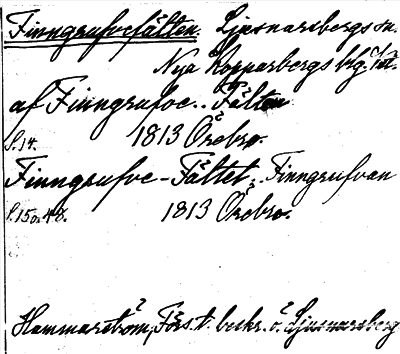 Finngrufvefälten. Ljusnarsbergs sn.
Nya Kopparbergs blg. Vst.
af Finngrufve-Fälten
S. 14. 1813 Örebro.
Finngrufve-Fältet, Finngrufvan
S. 15 o. 48. 1813 Örebro.
Hammarström, Förs. t. beskr. ö. Ljusnarsberg